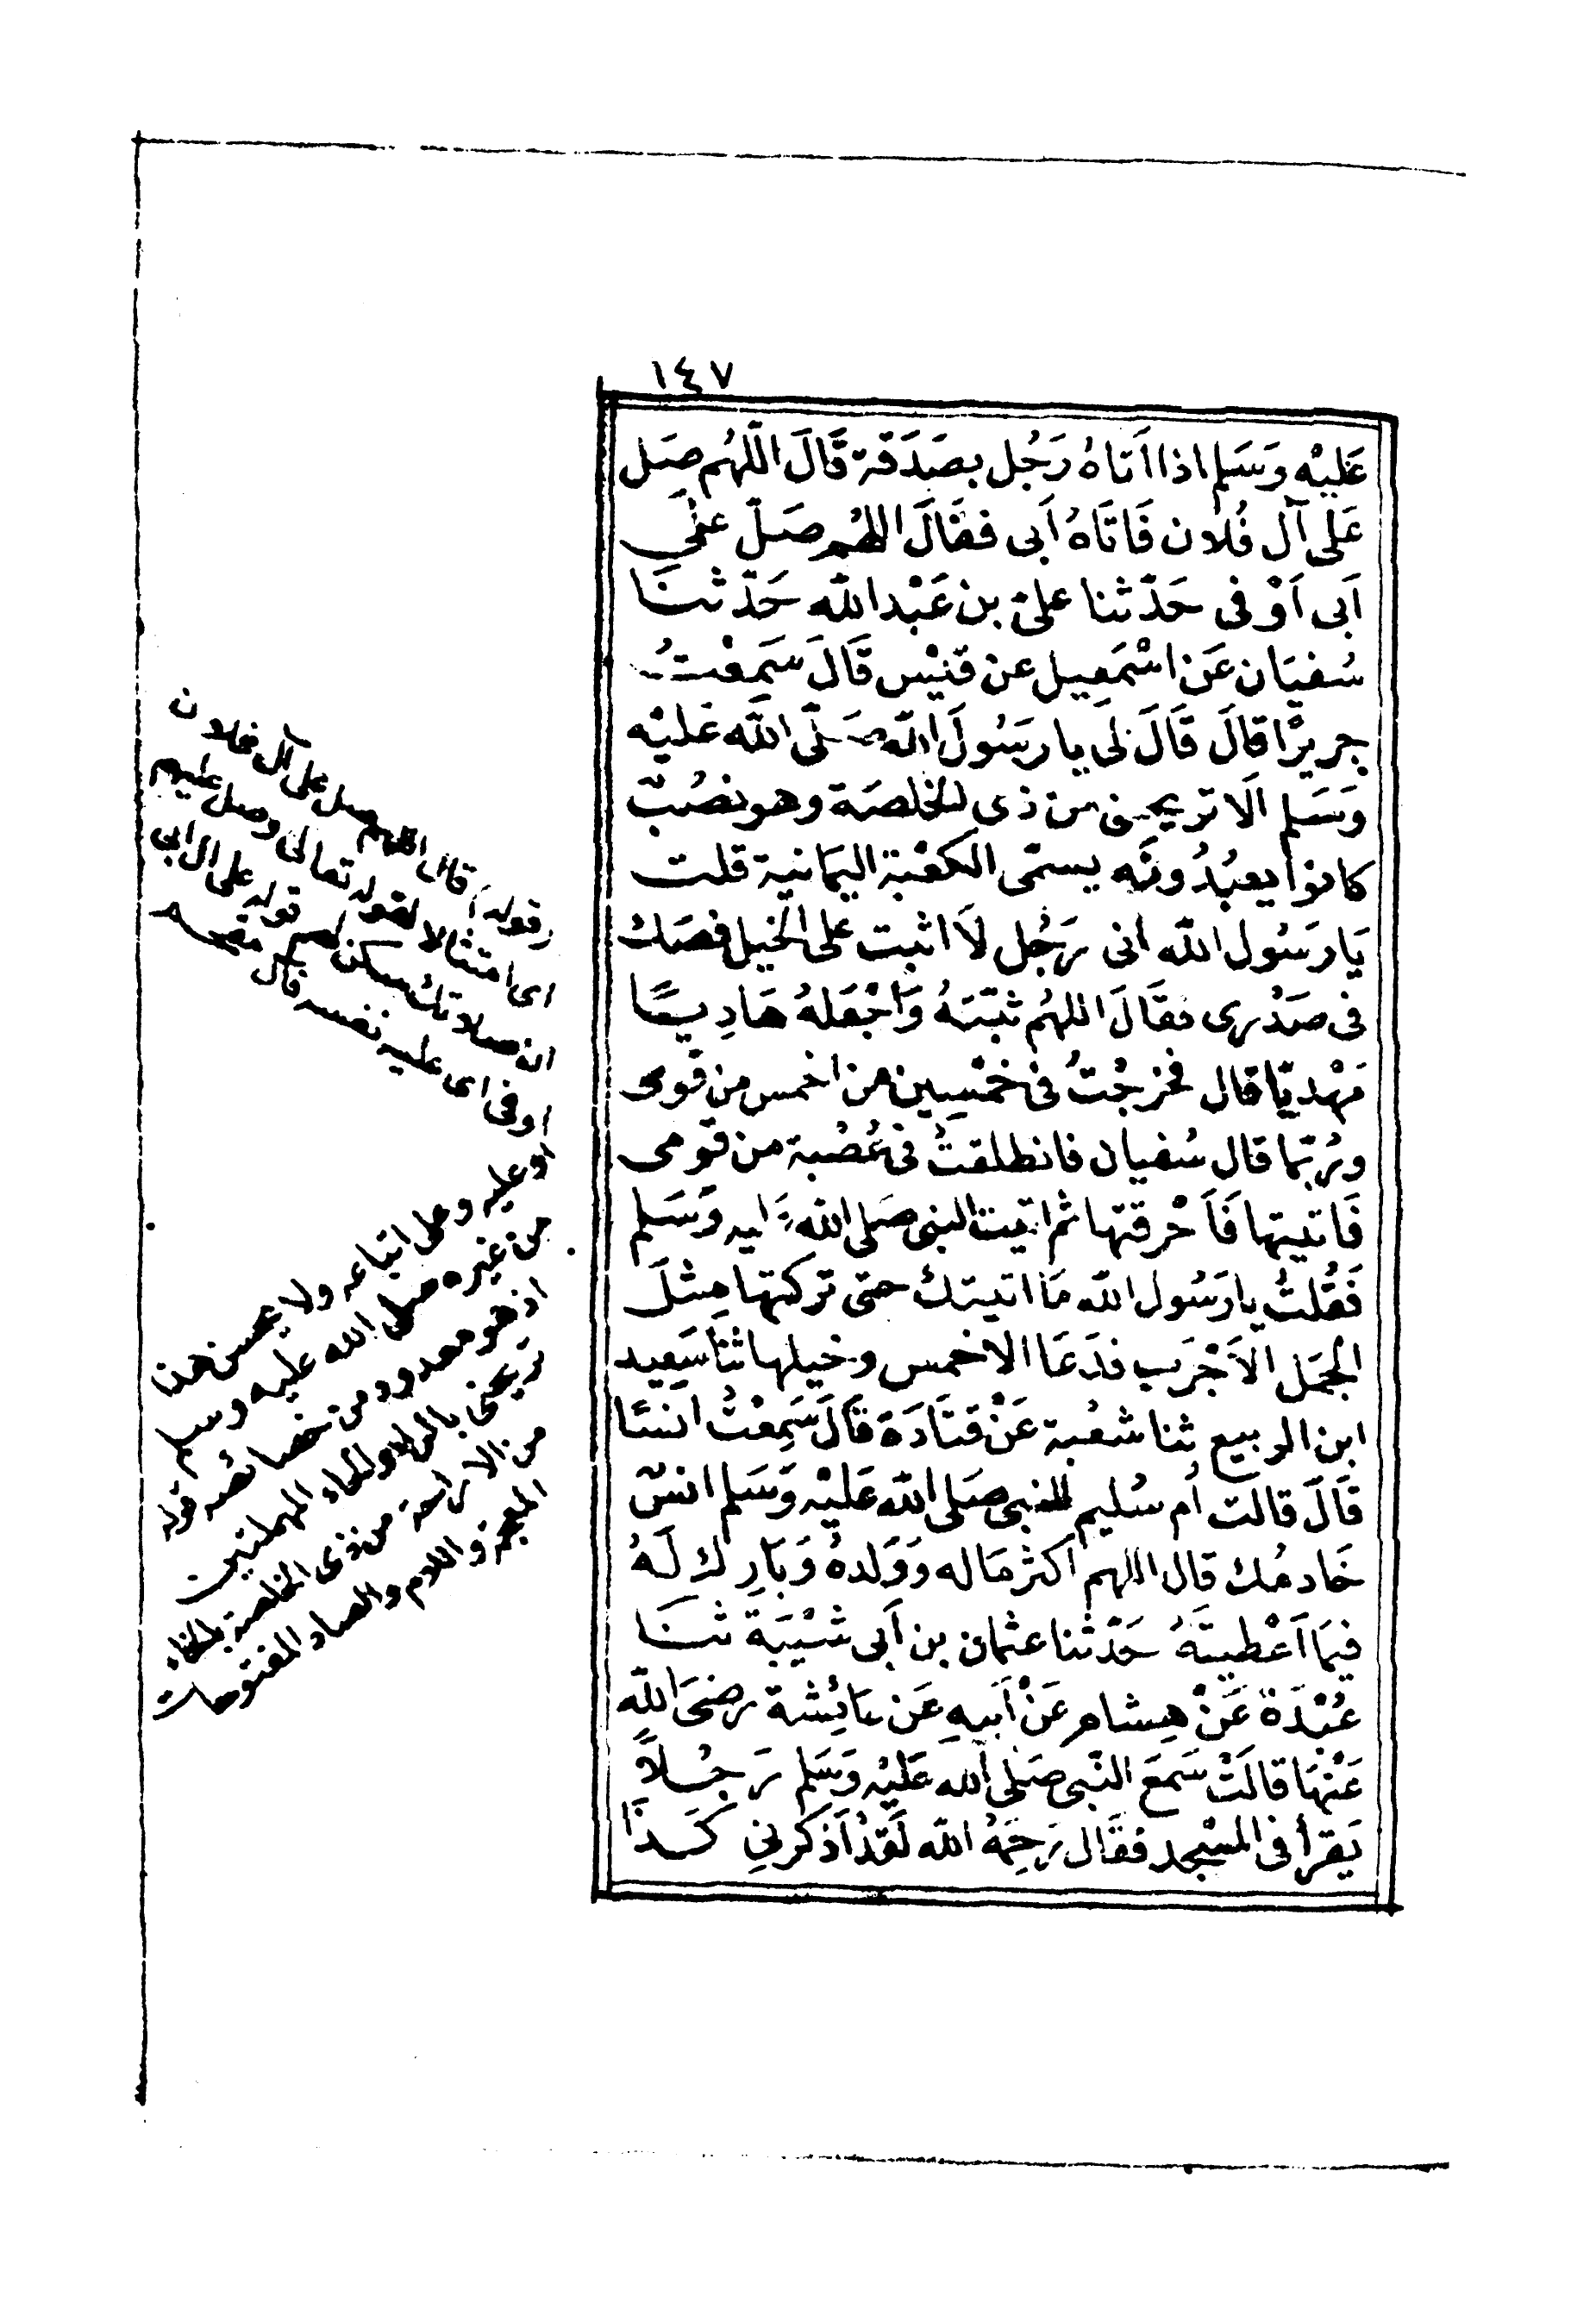 ١٤٧
عَلَيْه وَسَلم اذا اَتاهُ رَجُل بصَدَقة قَالَ اللّهُم صَل
عَلى آل فُلان فَاتَاهُ اَبى فقَالَ اللهُم صَلّ عَلٰى
اَبى اَوْفى حَدّثنا علىّ بن عَبْد اللّه حَدّثنَا
سُفيَان عَن اسْمَعِيل عن قَيْس قَالَ سَمِعْتُ
جريرًا قالَ قَالَ لى يا رَسُولَ اللّه صَلّى اللّه عَليْه
وَسَلم اَلَا تريحنى من ذى الخلصَة وهو نصُبٌ
كانوا يعبُدُونَه يسمّى الكعْبَة اليَمانية قلت
يَا رَسُول اللّه انى رَجُل لَا اثبت على الخيل فصَك
فى صَدْرى فقَالَ اللهُم ثَبّتهُ وَاجْعَلهُ هَادِيًا
مَهْديّا قال فخرجْتُ فى خمْسِين من اخمس من قَومى
ورُبّما قال سُفيان فانطلقتُ فى عُصْبة من قَومى
فَاتيتها فَاَحْرقتها ثم اتيت النبى صَلى اللّه عَليه وَسَلم
فَقُلتُ يا رَسُول اللّه مَا اتيتك حتى تركتها مِثلَ
الجَمَل الاَجْرَب فدَعَا الاخمس وخيلها ثنا سَعِيد
ابن الربيع ثنا شعْبة عَنْ قَتَادَة قَالَ سَمِعْتُ انسًا
قَالَ قالت اُم سُليم للنبى صَلى اللّه عَلَيْه وَسَلم انسٌ
خَادمُك قال اللهم اَكثر مَاله وَوَلدهُ وَبَارك لَهُ
فيمَا اَعْطيتَهُ حَدّثنا عثمان بن اَبى شَيْبَة ثنَا
عُبْدَة عَنْ هِشام عَنْ اَبيهِ عَن عَائِشة رضىَ اللّه
عَنْهَا قالَتْ سَمعَ النّبى صَلى اللّه عَليْه وَسَلم رَجُلاً
يَقرأ فى المسْجد فقَال رَحِمَهُ اللّه لَقدْ اَذكرنى كَذَا
قوله قال اللهم صل على آل فلان
اى امتثالا لقوله تعالى وصل عليهم
ان صلاتك سكن لهم قوله على ال ابى
اوفى اى عليه نفسه فال مقحم
او عليه وعلى اتباعه ولا يحسن هذا
من غيره صلى الله عليه وسلم
اذ هو معدود من خصائصه قوله
تريحنى بالراء والحاء المهملتين
من الاراحة من ذى الخلصة بالخاء
المعجمة واللام والصاد المفتوحات